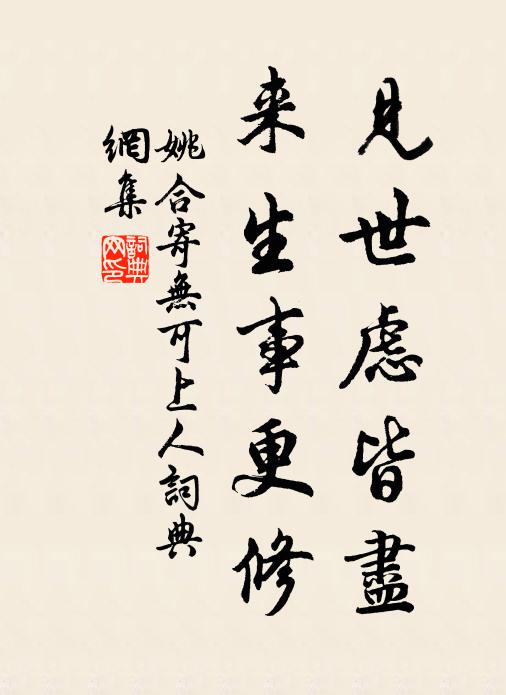 見世慮皆盡
来生事更修
姚合寄無可上人詞典
網集
詞典
网印